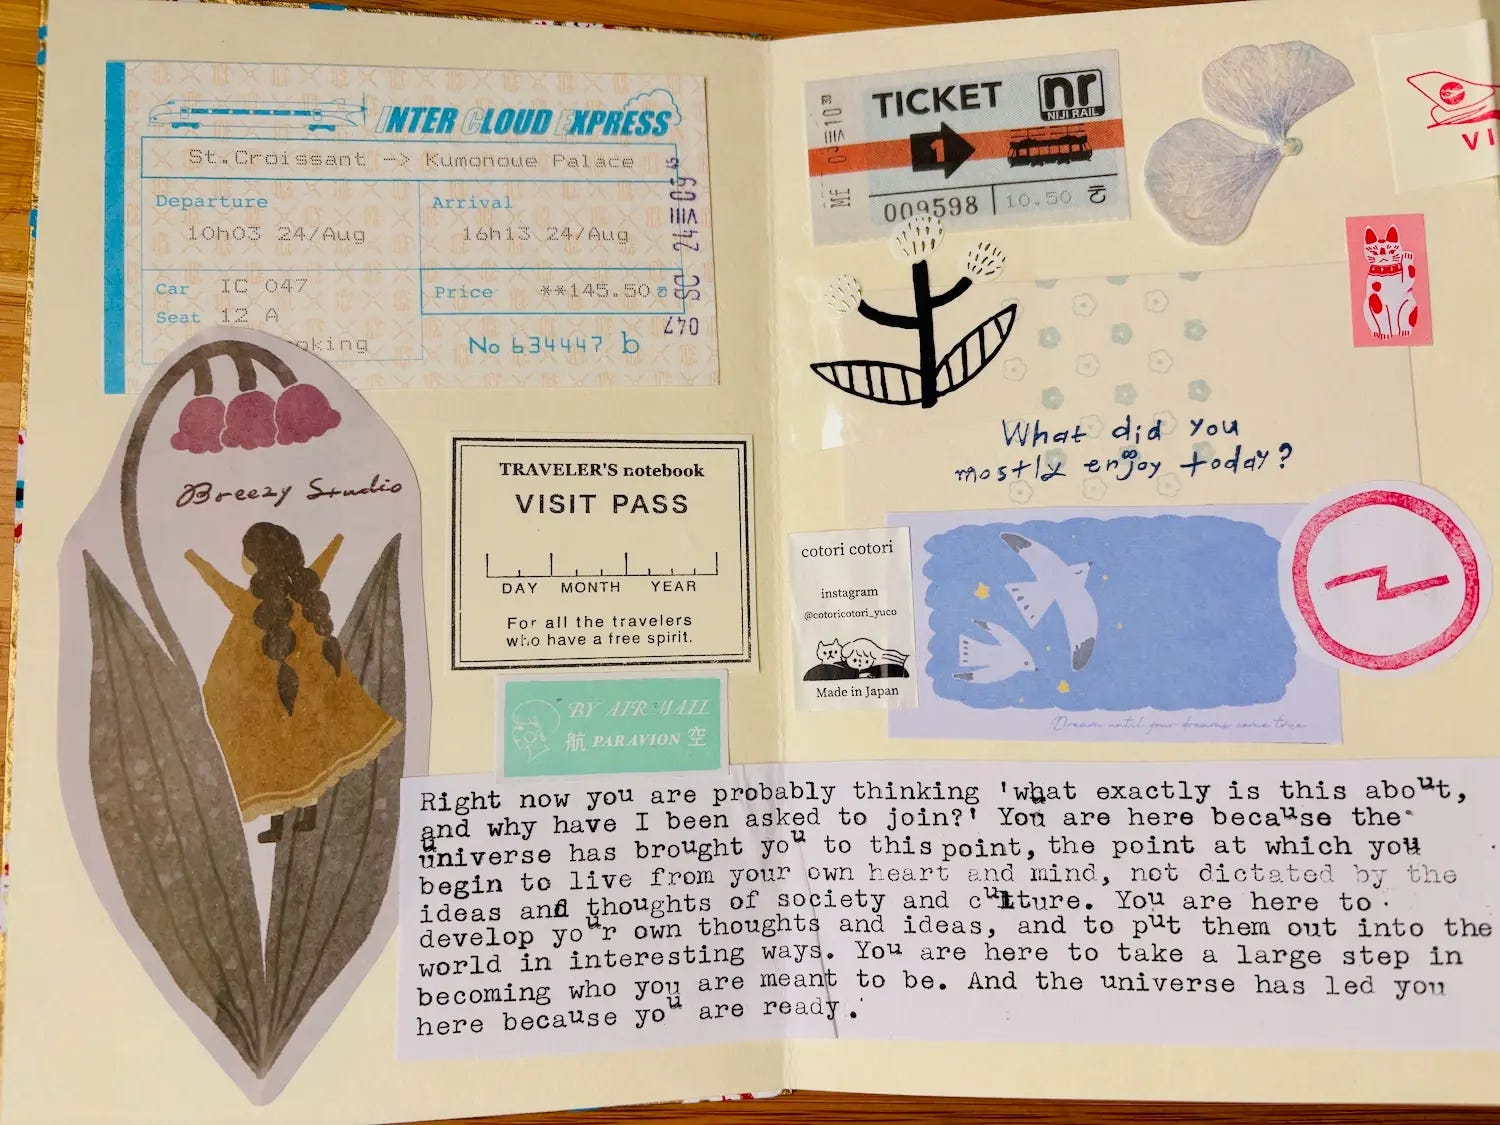 INTER CLOUD EXPRESS
St.Croissant -> Kumonoue Palace
Departure
10h03 24/Aug
Arrival
16h13 24/Aug
Car IC 047
Seat 12 A
oking
Price **145.50
No 634447 b
24 09 45
SC
047
Breezy Studio
TRAVELER'S notebook
VISIT PASS
DAY MONTH YEAR
For all the travelers
who have a free spirit.
BY AIR MAIL
航 PARAVION 空
TICKET
nr
NIJI RAIL
1
009598
10.50
VI
What did you
mostly enjoy today?
cotori cotori
instagram
@cotoricotori_yuco
Made in Japan
Dream until your dreams come true
Right now you are probably thinking 'what exactly is this about,
and why have I been asked to join?' You are here because the
universe has brought you to this point, the point at which you
begin to live from your own heart and mind, not dictated by the
ideas and thoughts of society and culture. You are here to
develop your own thoughts and ideas, and to put them out into the
world in interesting ways. You are here to take a large step in
becoming who you are meant to be. And the universe has led you
here because you are ready.